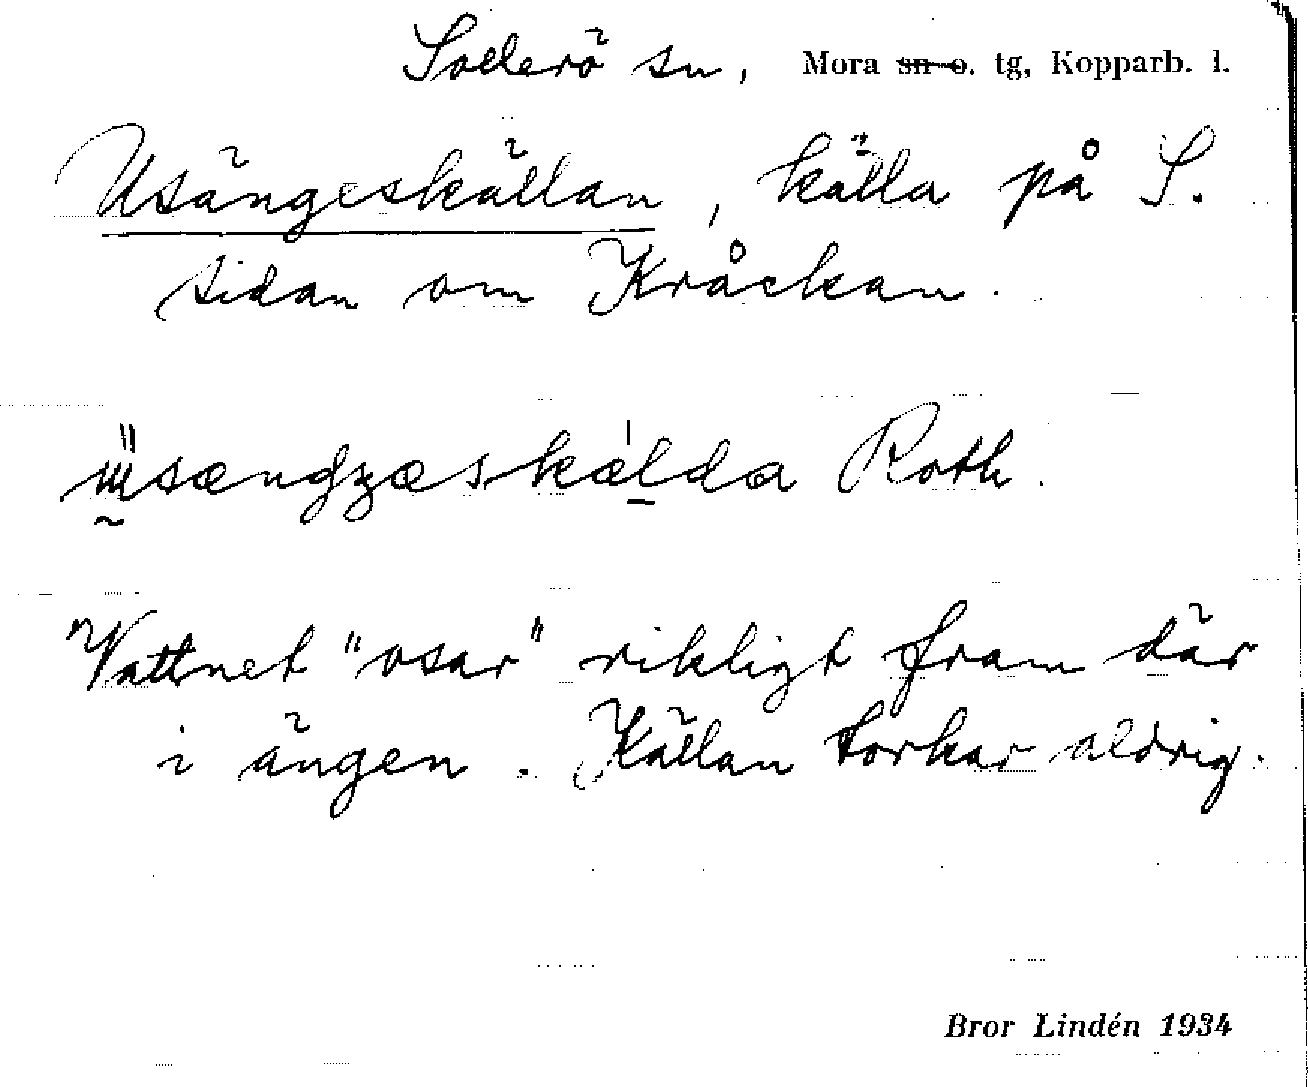 Sollerö sn, Mora sn o. tg, Kopparb. l.
Usängeskällan, källa på S.
sidan om Kråckan.
Roth.
"Vattnet "osar" rikligt fram där
i ängen. Källan torkar aldrig.
Bror Lindén 1934